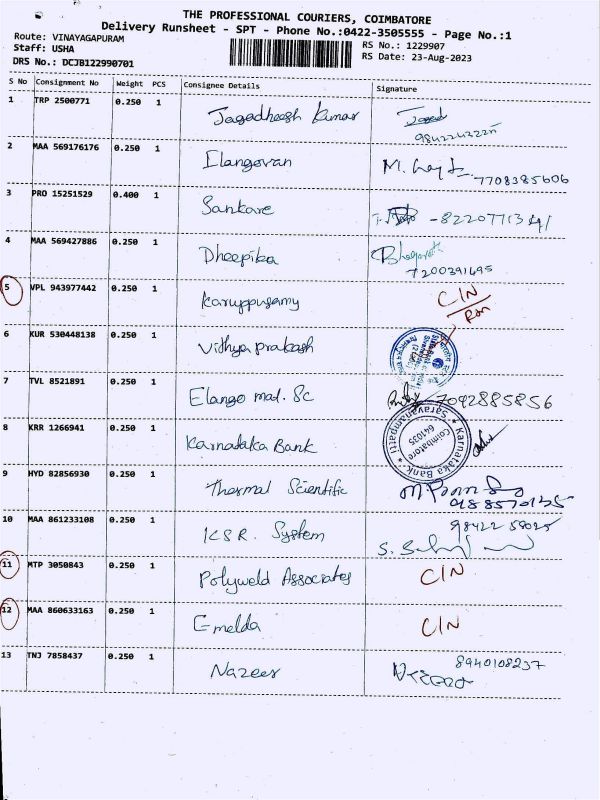 THE PROFESSIONAL COURIERS, COIMBATORE
Delivery Runsheet - SPT - Phone No.:0422-3505555 - Page No.:1
Route: VINAYAGAPURAM
RS No.: 1229907
Staff: USHA
RS Date: 23-Aug-2023
DRS No.: DCJB122990701
S No Consignment No Weight PCS Consignee Details Signature
1 TRP 2500771 0.250 1 Jagadheesh Kumar
9842243225
2 MAA 569176176 0.250 1 Elangovan M.
7708385606
3 PRO 15251529 0.400 1 Sankare
4 MAA 569427886 0.250 1 Dheepika Bhagavath
7200391695
5 VPL 943977442 0.250 1 Karuppusamy C/N
6 KUR 530448138 0.250 1 Vidhya prakash
7 TVL 8521891 0.250 1 Elango mat. Sc 7092885856
8 KRR 1266941 0.250 1 Karnataka Bank Karnataka Bank Saravanampatti Coimbatore 641035
9 HYD 82856930 0.250 1 Thermal Scientific
10 MAA 861233108 0.250 1 K.S.R. System
11 MTP 3050843 0.250 1 Polyweld Associates C/N
12 MAA 860633163 0.250 1 Emelda C/N
13 TNJ 7858437 0.250 1 Nazeer 8940108237